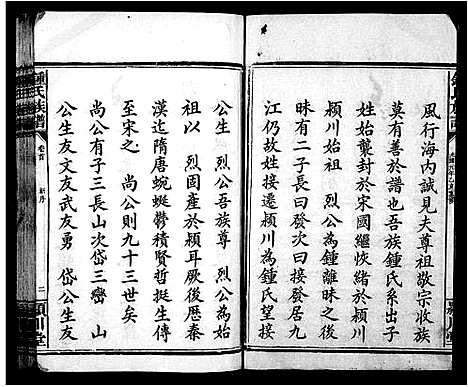 風行海内誠見夫尊祖敬宗收族
莫有善於譜也吾族鍾氏系出子
姓始襲封於宋國繼恢緒於潁川
潁川始祖 烈公為鍾離昧之後
昧有二子長曰發次曰接發居九
江仍故姓接遷潁川為鍾氏望接
祖以 烈公吾族尊 烈公為始
祖以 烈固產於潁耳厥後歷秦
漢迄隋唐蜿蜒鬱積賢哲挺生傳
至宋之 尚公則九十三世矣
尚公有子三長山次岱三巒 山
公生友文友武友勇 岱公生友
鍾氏族譜
卷首
新序
二
潁川堂